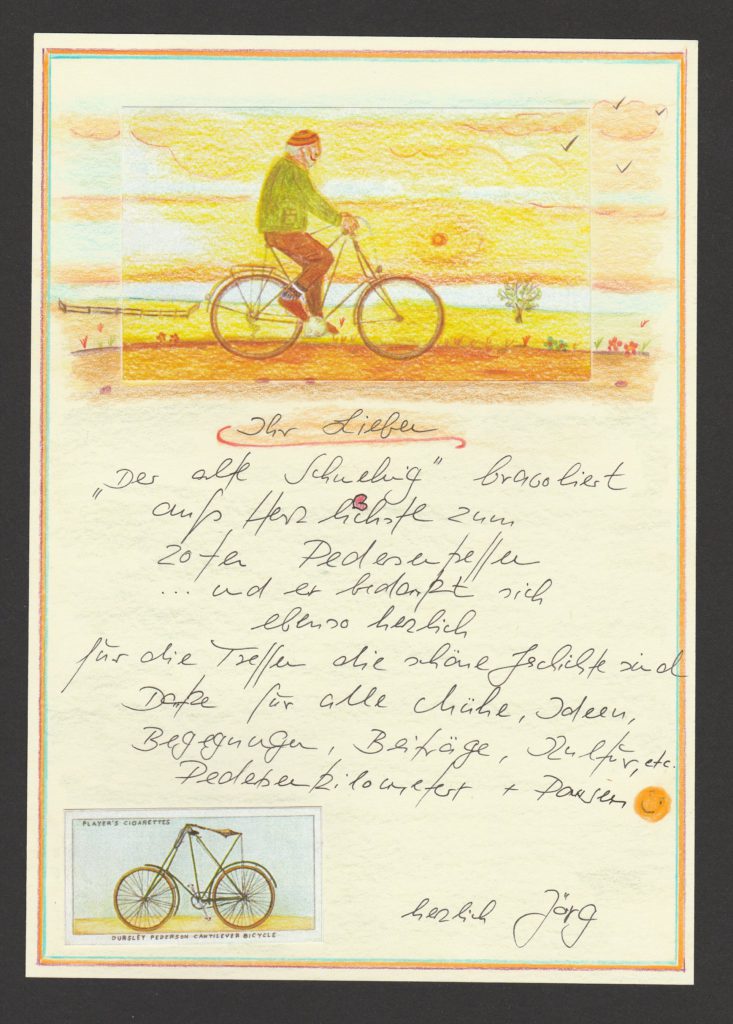 Ihr Lieben
„Der alte Schwebig" bravoliert
aufs Herzlichste zum
20ten Pedersentreffen
... und er bedankt sich
ebenso herzlich
für die Treffen die schöne Gschichte sind
Danke für alle Mühe, Ideen,
Begegnungen, Beiträge, Kultur, etc.
Pedersenkilometer + Pausen
PLAYER'S CIGARETTES
DURSLEY PEDERSON CANTILEVER BICYCLE
herzlich Jörg